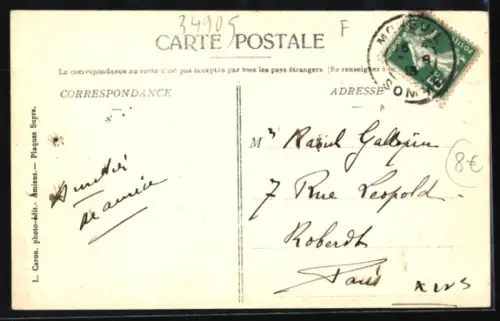 34905
F
CARTE POSTALE
La correspondance au recto n'est pas acceptée par tous les pays étrangers. (Se renseigner à
CORRESPONDANCE
ADRESSE
L. Caron, photo-édit.- Amiens.— Plaques Supra.
Amitié
Maurice
Mr Raoul
7 Rue Léopold
Robert
Paris
8€